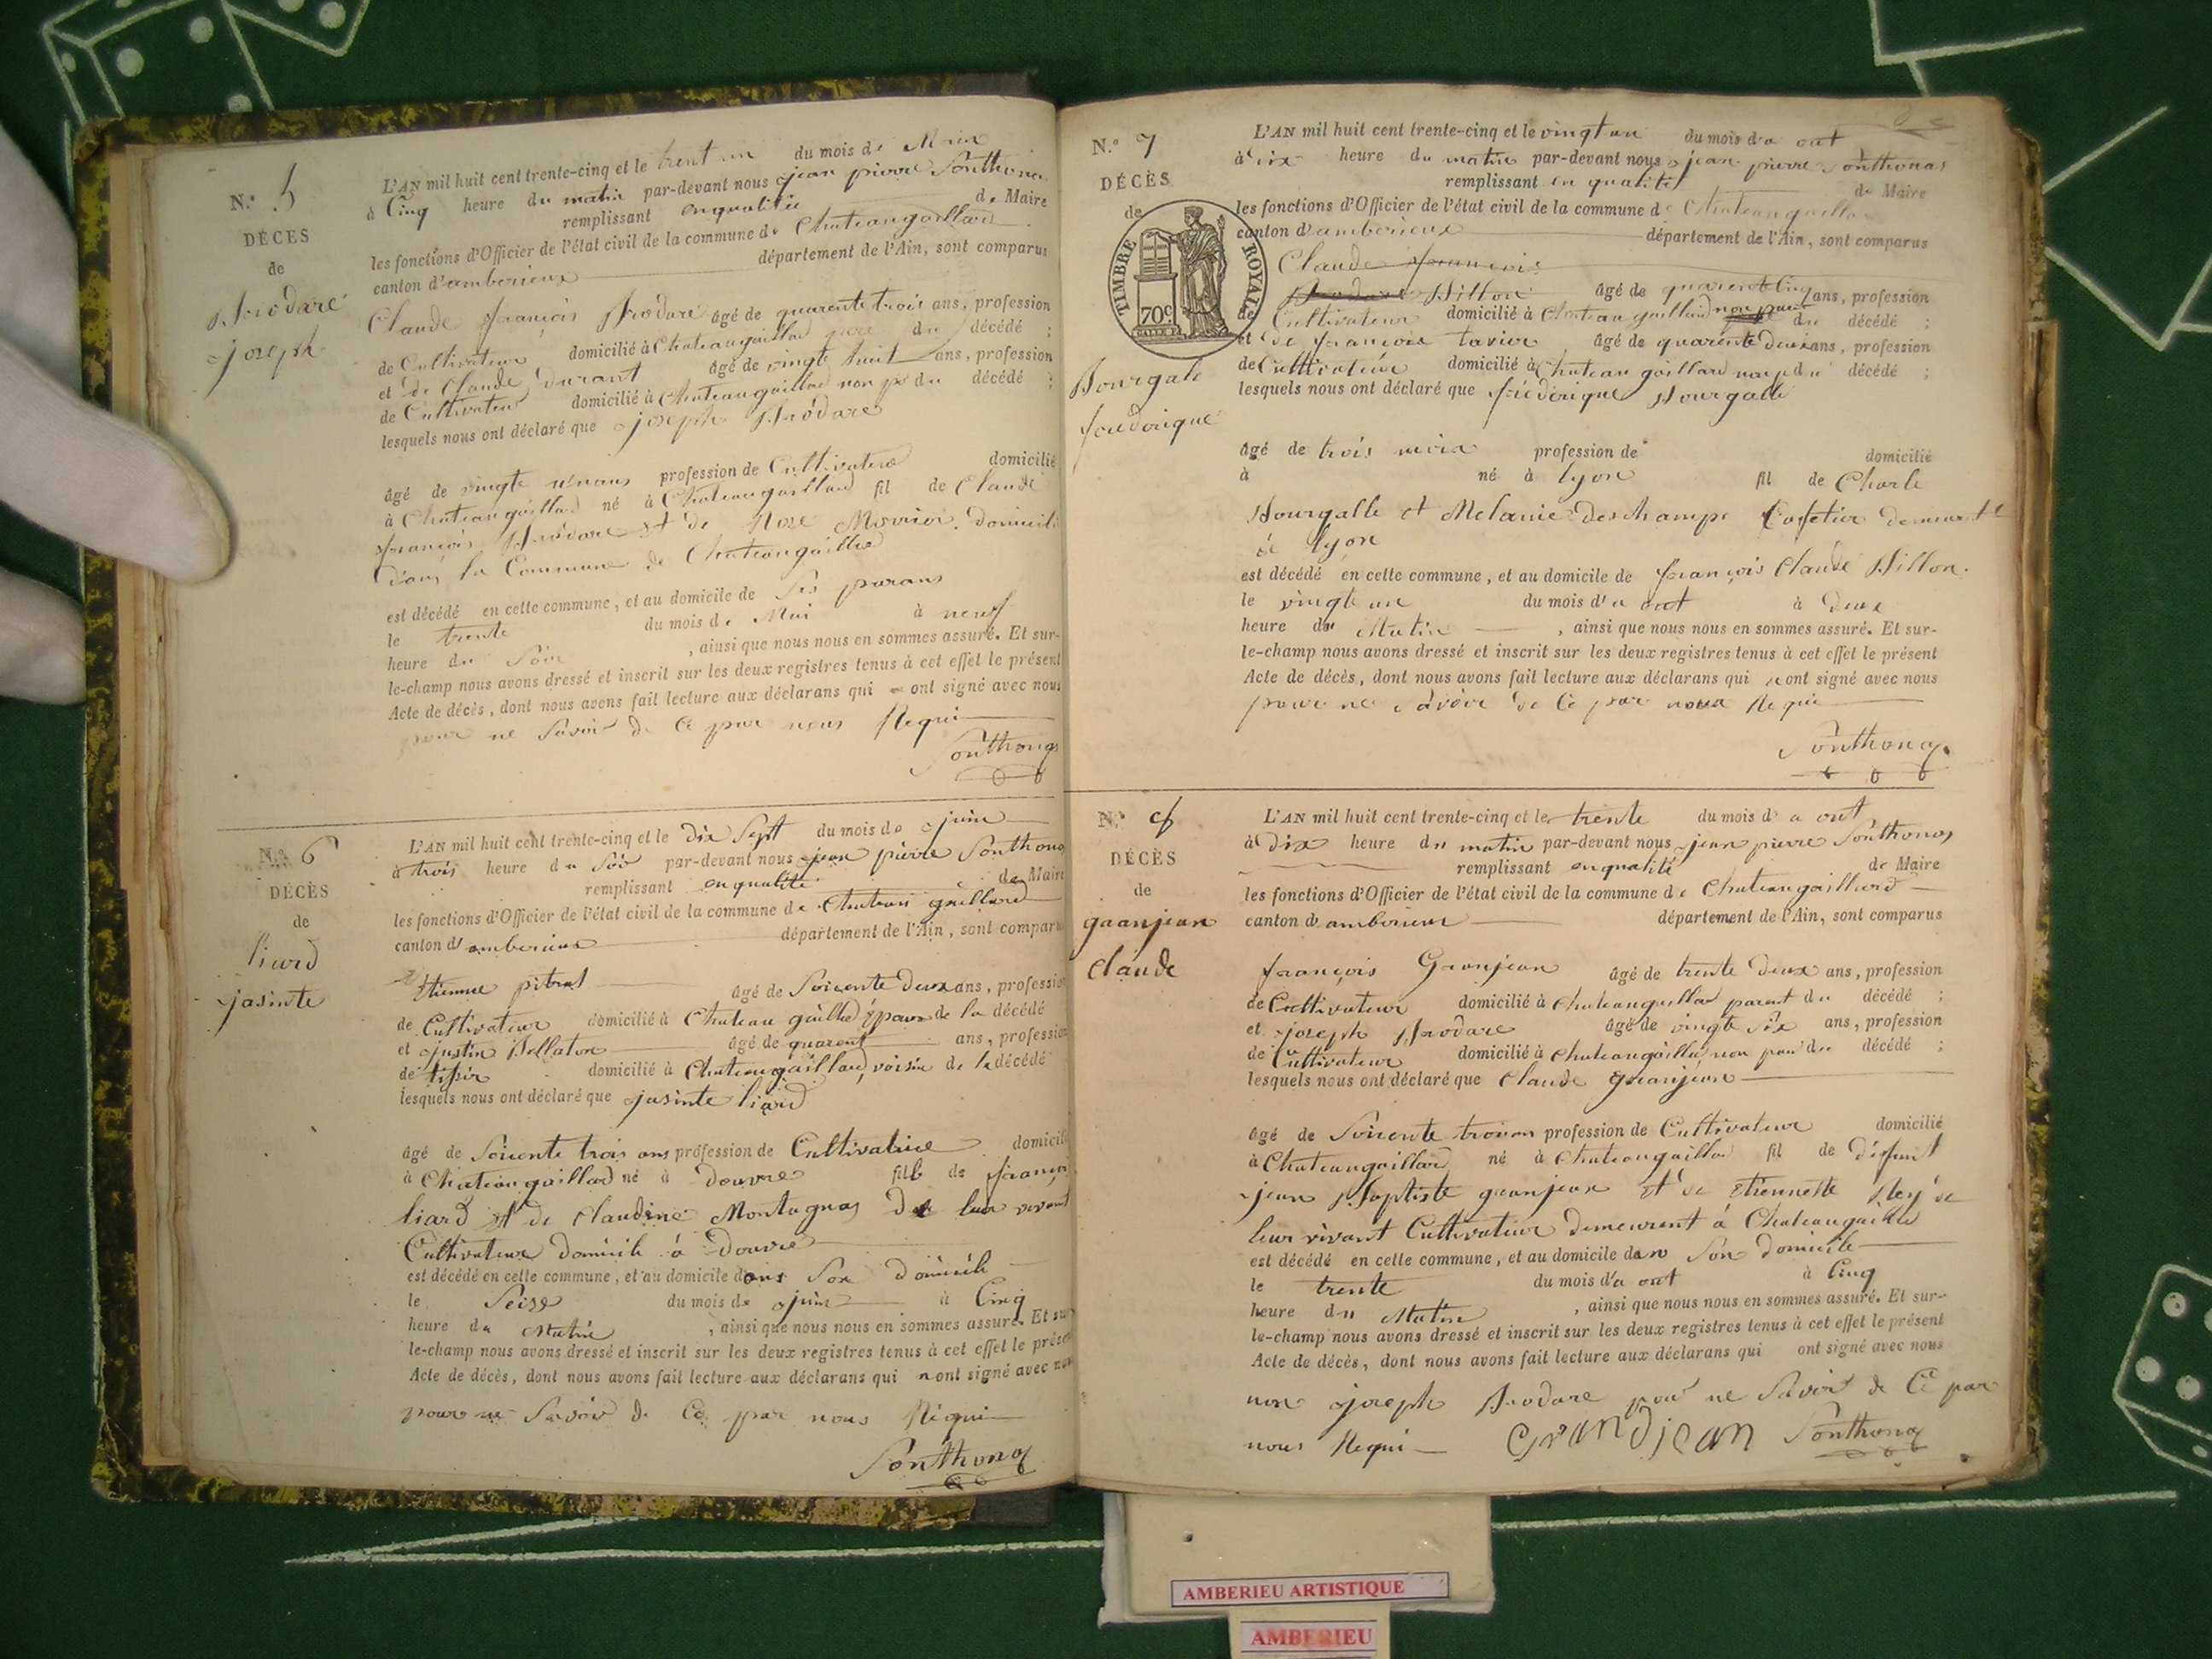 N.o 5
DÉCÈS
de
Brodare
joseph
L'AN mil huit cent trente-cinq et le trent un du mois de Maix
à Cinq heure du matin par-devant nous jean pierre Ponthonas
remplissant enqualitée de Maire
les fonctions d'Officier de l'état civil de la commune de Chateaugaillard
canton d'amberieux département de l'Ain, sont comparus
Claude françois Brodare âgé de quarente trois ans, profession
de Cultivateur domicilié à Chateaugaillar pere du décédé ;
et de Claude durant âgé de vingte huit ans, profession
de Cultivateur domicilié à Chateaugaillar non pr du décédé ;
lesquels nous ont déclaré que joseph Brodare
âgé de vingte profession de Cultivateur domicilié
à Chateaugaillar né à Chateaugaillard fil de Claude
françois Brodare et de Rose domicili
dans la Commune de Chateaugaillard
est décédé en cette commune, et au domicile de Ses parans
le trente du mois de Mai à neuf
heure du Soir , ainsi que nous nous en sommes assuré. Et sur-
le-champ nous avons dressé et inscrit sur les deux registres tenus à cet effet le présent
Acte de décès, dont nous avons fait lecture aux déclarans qui ont signé avec nous
pour ne Savoir de Ce par nous Requi
Ponthonas
N.o 6
DÉCÈS
de
liard
jasinte
L'AN mil huit cent trente-cinq et le dix Sept du mois de juin
à trois heure du Soir par-devant nous jean pierre Ponthonas
remplissant enqualité de Maire
les fonctions d'Officier de l'état civil de la commune de Chateau gaillard
canton d'amberieux département de l'Ain, sont comparus
Etienne pitrat âgé de Soixente deux ans, profession
de Cultivateur domicilié à Chateau gaillard époux de la décédé
et justin Bellaton âgé de quarent ans, profession
de tisir domicilié à Chateaugaillard, voisin de la décédé
lesquels nous ont déclaré que jasinte liard
âgé de Soixente trois ans profession de Cultivatrice domicilié
à Chateaugaillard né à douvre fille de françoi
liard et de Claudine Montagnas De leur vivant
Cultivateur domicile à Douvre
est décédé en cette commune, et au domicile dans Son domicile
le Seise du mois de juin à Cinq
heure du Matin , ainsi que nous nous en sommes assuré. Et sur
le-champ nous avons dressé et inscrit sur les deux registres tenus à cet effet le présent
Acte de décès, dont nous avons fait lecture aux déclarans qui nont signé avec nous
pour ne Savoir de Ce par nous Requi
Ponthonas
N.o 7
DÉCÈS
de
TIMBRE ROYALE
70c
Bourgale
frederique
L'AN mil huit cent trente-cinq et le vingt un du mois d'a out
à dix heure du matin par-devant nous jean pierre Ponthonas
remplissant en qualité de Maire
les fonctions d'Officier de l'état civil de la commune de Chateaugaillar
canton d'amberieux département de l'Ain, sont comparus
Claude françois
Brodare Billon âgé de quarent Cinq ans, profession
de Cultivateur domicilié à Chateau gaillard non par du décédé ;
et de françois tavier âgé de quarente deux ans, profession
de Cultivateur domicilié à Chateau gaillard non p du décédé ;
lesquels nous ont déclaré que fréderique Bourgalle
âgé de trois moix profession de domicilié
à né à lyon fil de Charle
Bourgalle et Melanie deschamps Cafetier demeurant
à lyon
est décédé en cette commune, et au domicile de françois Claude Billon.
le vingte un du mois d'a out à deux
heure du Matin , ainsi que nous nous en sommes assuré. Et sur-
le-champ nous avons dressé et inscrit sur les deux registres tenus à cet effet le présent
Acte de décès, dont nous avons fait lecture aux déclarans qui nont signé avec nous
pour ne Savoir de Ce par nous Requi
Ponthonas
N.o 8
DÉCÈS
de
granjean
Claude
L'AN mil huit cent trente-cinq et le trente du mois d'a out
à dix heure du matin par-devant nous jean pierre Ponthonas
remplissant enqualité de Maire
les fonctions d'Officier de l'état civil de la commune de Chateaugaillard
canton d'amberieux département de l'Ain, sont comparus
françois Granjean âgé de trente deux ans, profession
de Cultivateur domicilié à Chateaugaillar parent du décédé ;
et joseph Brodare âgé de vingte Six ans, profession
de Cultivateur domicilié à Chateaugaillar, non par du décédé ;
lesquels nous ont déclaré que Claude granjean
âgé de Soixente trois an profession de Cultivateur domicilié
à Chateaugaillard né à Chateaugaillar fil de défunt
jean Baptiste granjean et de Etiennette Rey de
leur vivant Cultivateur demeurent à Chateaugaillar
est décédé en cette commune, et au domicile dan Son domicile
le trente du mois d'a out à Cinq
heure du Matin , ainsi que nous nous en sommes assuré. Et sur-
le-champ nous avons dressé et inscrit sur les deux registres tenus à cet effet le présent
Acte de décès, dont nous avons fait lecture aux déclarans qui ont signé avec nous
non joseph Brodare pour ne Savoir de Ce par
nous Requi Grandjean Ponthonas
AMBERIEU ARTISTIQUE
AMBERIEU